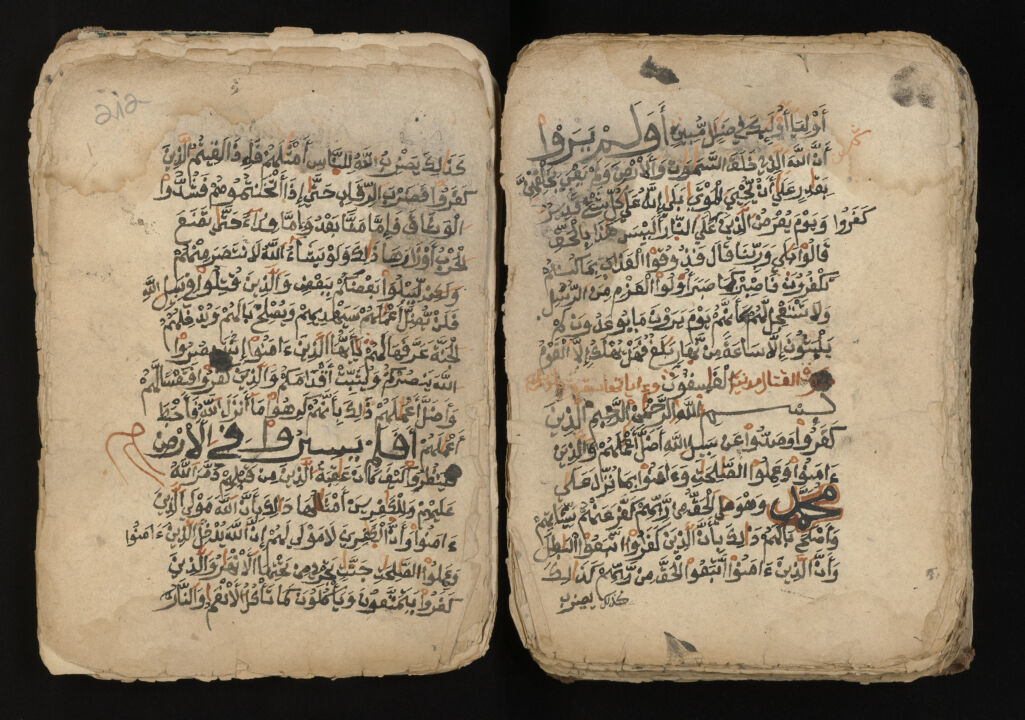 أَوْلِيَا أُوْلَٰئِكَ فِي ضَلَٰلٍ مُّبِينٍ أَوَلَمْ يَرَوْا
أَنَّ اللَّهَ الَّذِي خَلَقَ السَّمَٰوَٰتِ وَالْأَرْضَ وَلَمْ يَعْيَ بِخَلْقِهِنَّ
بِقَٰدِرٍ عَلَىٰ أَنْ يُّحْيِيَ الْمَوْتَىٰ بَلَىٰ إِنَّهُ عَلَىٰ كُلِّ شَيْءٍ قَدِيرٌ
وَيَوْمَ يُعْرَضُ الَّذِينَ كَفَرُوا عَلَى النَّارِ أَلَيْسَ هَٰذَا بِالْحَقِّ
قَالُوا بَلَىٰ وَرَبِّنَا قَالَ فَذُوقُوا الْعَذَابَ بِمَا كُنتُمْ
تَكْفُرُونَ فَاصْبِرْ كَمَا صَبَرَ أُوْلُوا الْعَزْمِ مِنَ الرُّسُلِ
وَلَا تَسْتَعْجِل لَّهُمْ كَأَنَّهُمْ يَوْمَ يَرَوْنَ مَا يُوعَدُونَ لَمْ
يَلْبَثُوا إِلَّا سَاعَةً مِّن نَّهَارٍ بَلَٰغٌ فَهَلْ يُهْلَكُ إِلَّا الْقَوْمُ
الْفَٰسِقُونَ سورة القتال مدنية
بِسْمِ اللَّهِ الرَّحْمَٰنِ الرَّحِيمِ الَّذِينَ
كَفَرُوا وَصَدُّوا عَن سَبِيلِ اللَّهِ أَضَلَّ أَعْمَٰلَهُمْ وَالَّذِينَ
ءَامَنُوا وَعَمِلُوا الصَّٰلِحَٰتِ وَءَامَنُوا بِمَا نُزِّلَ عَلَىٰ
مُحَمَّدٍ وَهُوَ الْحَقُّ مِن رَّبِّهِمْ كَفَّرَ عَنْهُمْ سَيِّئَاتِهِمْ
وَأَصْلَحَ بَالَهُمْ ذَٰلِكَ بِأَنَّ الَّذِينَ كَفَرُوا اتَّبَعُوا الْبَٰطِلَ
وَأَنَّ الَّذِينَ ءَامَنُوا اتَّبَعُوا الْحَقَّ مِن رَّبِّهِمْ كَذَٰلِكَ
كذلك يضرب
212
كَذَٰلِكَ يَضْرِبُ اللَّهُ لِلنَّاسِ أَمْثَٰلَهُمْ فَإِذَا لَقِيتُمُ الَّذِينَ
كَفَرُوا فَضَرْبَ الرِّقَابِ حَتَّىٰ إِذَا أَثْخَنتُمُوهُمْ فَشُدُّوا
الْوَثَاقَ فَإِمَّا مَنًّا بَعْدُ وَإِمَّا فِدَاءً حَتَّىٰ تَضَعَ
الْحَرْبُ أَوْزَارَهَا ذَٰلِكَ وَلَوْ يَشَاءُ اللَّهُ لَانتَصَرَ مِنْهُمْ
وَلَٰكِن لِّيَبْلُوَا بَعْضَكُم بِبَعْضٍ وَالَّذِينَ قُتِلُوا فِي سَبِيلِ اللَّهِ
فَلَنْ يُّضِلَّ أَعْمَٰلَهُمْ سَيَهْدِيهِمْ وَيُصْلِحُ بَالَهُمْ وَيُدْخِلُهُمُ
الْجَنَّةَ عَرَّفَهَا لَهُمْ يَٰأَيُّهَا الَّذِينَ ءَامَنُوا إِن تَنصُرُوا
اللَّهَ يَنصُرْكُمْ وَيُثَبِّتْ أَقْدَامَكُمْ وَالَّذِينَ كَفَرُوا فَتَعْسًا لَّهُمْ
وَأَضَلَّ أَعْمَٰلَهُمْ ذَٰلِكَ بِأَنَّهُمْ كَرِهُوا مَا أَنزَلَ اللَّهُ فَأَحْبَطَ
أَعْمَٰلَهُمْ أَفَلَمْ يَسِيرُوا فِي الْأَرْضِ
فَيَنظُرُوا كَيْفَ كَانَ عَٰقِبَةُ الَّذِينَ مِن قَبْلِهِمْ دَمَّرَ اللَّهُ
عَلَيْهِمْ وَلِلْكَٰفِرِينَ أَمْثَٰلُهَا ذَٰلِكَ بِأَنَّ اللَّهَ مَوْلَى الَّذِينَ
ءَامَنُوا وَأَنَّ الْكَٰفِرِينَ لَا مَوْلَىٰ لَهُمْ إِنَّ اللَّهَ يُدْخِلُ الَّذِينَ ءَامَنُوا
وَعَمِلُوا الصَّٰلِحَٰتِ جَنَّٰتٍ تَجْرِي مِن تَحْتِهَا الْأَنْهَٰرُ وَالَّذِينَ
كَفَرُوا يَتَمَتَّعُونَ وَيَأْكُلُونَ كَمَا تَأْكُلُ الْأَنْعَٰمُ وَالنَّارُ